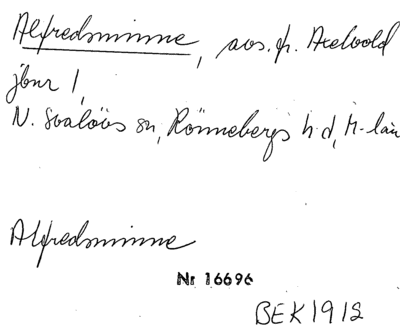 Alfredsminne, avs. fr. Axelvold
jbnr 1,
N. Svalövs sn, Rönnebergs hd, M-län
Alfredsminne
Nr 16696
BEK 1912